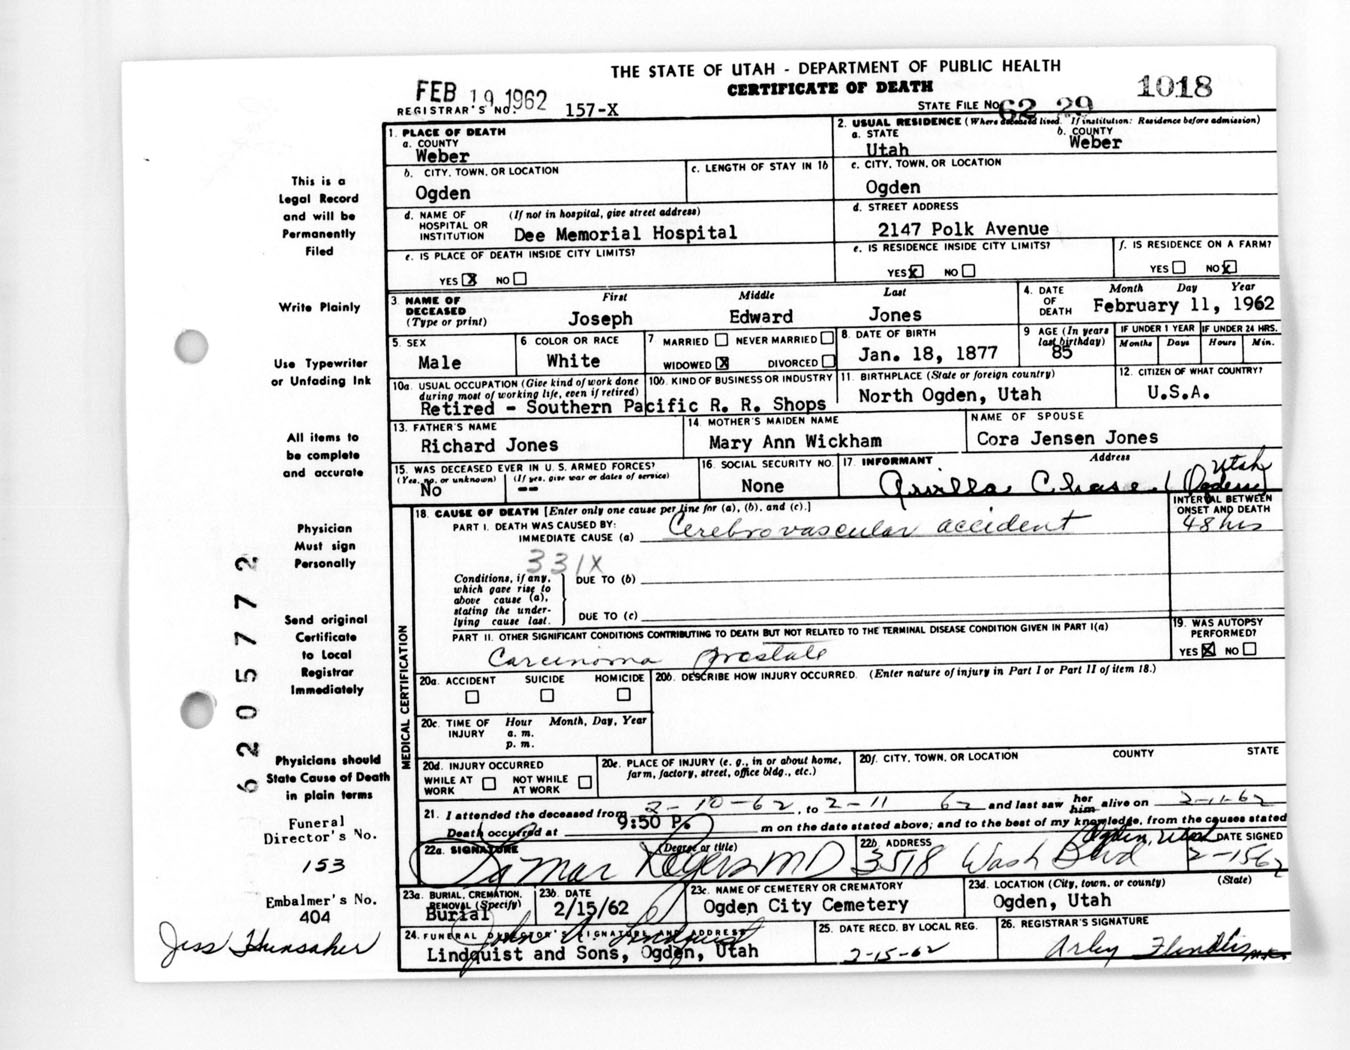 THE STATE OF UTAH - DEPARTMENT OF PUBLIC HEALTH
CERTIFICATE OF DEATH
1018
FEB 19 1962
REGISTRAR'S NO. 157-X
STATE FILE NO. 62 29
1. PLACE OF DEATH
a. COUNTY
Weber
2. USUAL RESIDENCE (Where deceased lived. If institution: Residence before admission)
a. STATE
Utah
b. COUNTY
Weber
b. CITY, TOWN, OR LOCATION
Ogden
c. LENGTH OF STAY IN 1b
c. CITY, TOWN, OR LOCATION
Ogden
d. NAME OF HOSPITAL OR INSTITUTION
(If not in hospital, give street address)
Dee Memorial Hospital
d. STREET ADDRESS
2147 Polk Avenue
e. IS PLACE OF DEATH INSIDE CITY LIMITS?
YES X NO
e. IS RESIDENCE INSIDE CITY LIMITS?
YES X NO
f. IS RESIDENCE ON A FARM?
YES NO X
3. NAME OF DECEASED (Type or print)
First Middle Last
Joseph Edward Jones
4. DATE OF DEATH
Month Day Year
February 11, 1962
5. SEX
Male
6 COLOR OR RACE
White
7 MARRIED NEVER MARRIED
WIDOWED X DIVORCED
8 DATE OF BIRTH
Jan. 18, 1877
9 AGE (In years last birthday)
85
IF UNDER 1 YEAR
Months Days
IF UNDER 24 HRS.
Hours Min.
10a. USUAL OCCUPATION (Give kind of work done during most of working life, even if retired)
10b. KIND OF BUSINESS OR INDUSTRY
Retired - Southern Pacific R. R. Shops
11. BIRTHPLACE (State or foreign country)
North Ogden, Utah
12. CITIZEN OF WHAT COUNTRY?
U.S.A.
13. FATHER'S NAME
Richard Jones
14. MOTHER'S MAIDEN NAME
Mary Ann Wickham
NAME OF SPOUSE
Cora Jensen Jones
15. WAS DECEASED EVER IN U.S. ARMED FORCES?
(Yes, no, or unknown) (If yes, give war or dates of service)
No --
16. SOCIAL SECURITY NO.
None
17. INFORMANT Address
Arvilla Chase (Ogden Utah)
18. CAUSE OF DEATH [Enter only one cause per line for (a), (b), and (c).]
PART I. DEATH WAS CAUSED BY:
IMMEDIATE CAUSE (a) Cerebro vascular accident
INTERVAL BETWEEN ONSET AND DEATH
48 hrs
331X
Conditions, if any, which gave rise to above cause (a), stating the underlying cause last.
DUE TO (b)
DUE TO (c)
PART II. OTHER SIGNIFICANT CONDITIONS CONTRIBUTING TO DEATH BUT NOT RELATED TO THE TERMINAL DISEASE CONDITION GIVEN IN PART I(a)
Carcinoma prostate
19. WAS AUTOPSY PERFORMED?
YES X NO
20a. ACCIDENT SUICIDE HOMICIDE
20b. DESCRIBE HOW INJURY OCCURRED. (Enter nature of injury in Part I or Part II of item 18.)
20c. TIME OF INJURY
Hour Month, Day, Year
a. m.
p. m.
20d. INJURY OCCURRED
WHILE AT WORK NOT WHILE AT WORK
20e. PLACE OF INJURY (e. g., in or about home, farm, factory, street, office bldg., etc.)
20f. CITY, TOWN, OR LOCATION COUNTY STATE
21. I attended the deceased from 2-10-62, to 2-11 62 and last saw her him alive on 2-11-62
Death occurred at 9:50 P. m on the date stated above; and to the best of my knowledge, from the causes stated
22a. SIGNATURE (Degree or title)
LaMar Rogers MD
22b. ADDRESS
3518 Wash Blvd Ogden, Utah
DATE SIGNED
2-15 62
23a. BURIAL, CREMATION, REMOVAL (Specify)
Burial
23b. DATE
2/15/62
23c. NAME OF CEMETERY OR CREMATORY
Ogden City Cemetery
23d. LOCATION (City, town, or county) (State)
Ogden, Utah
24. FUNERAL DIRECTOR'S SIGNATURE AND ADDRESS
John A. Lindquist
Lindquist and Sons, Ogden, Utah
25. DATE RECD. BY LOCAL REG.
2-15-62
26. REGISTRAR'S SIGNATURE
Arley
MEDICAL CERTIFICATION
This is a
Legal Record
and will be
Permanently
Filed
Write Plainly
Use Typewriter
or Unfading Ink
All items to
be complete
and accurate
Physician
Must sign
Personally
Send original
Certificate
to Local
Registrar
Immediately
Physicians should
State Cause of Death
in plain terms
Funeral
Director's No.
153
Embalmer's No.
404
Jess Hunsaker
6205772